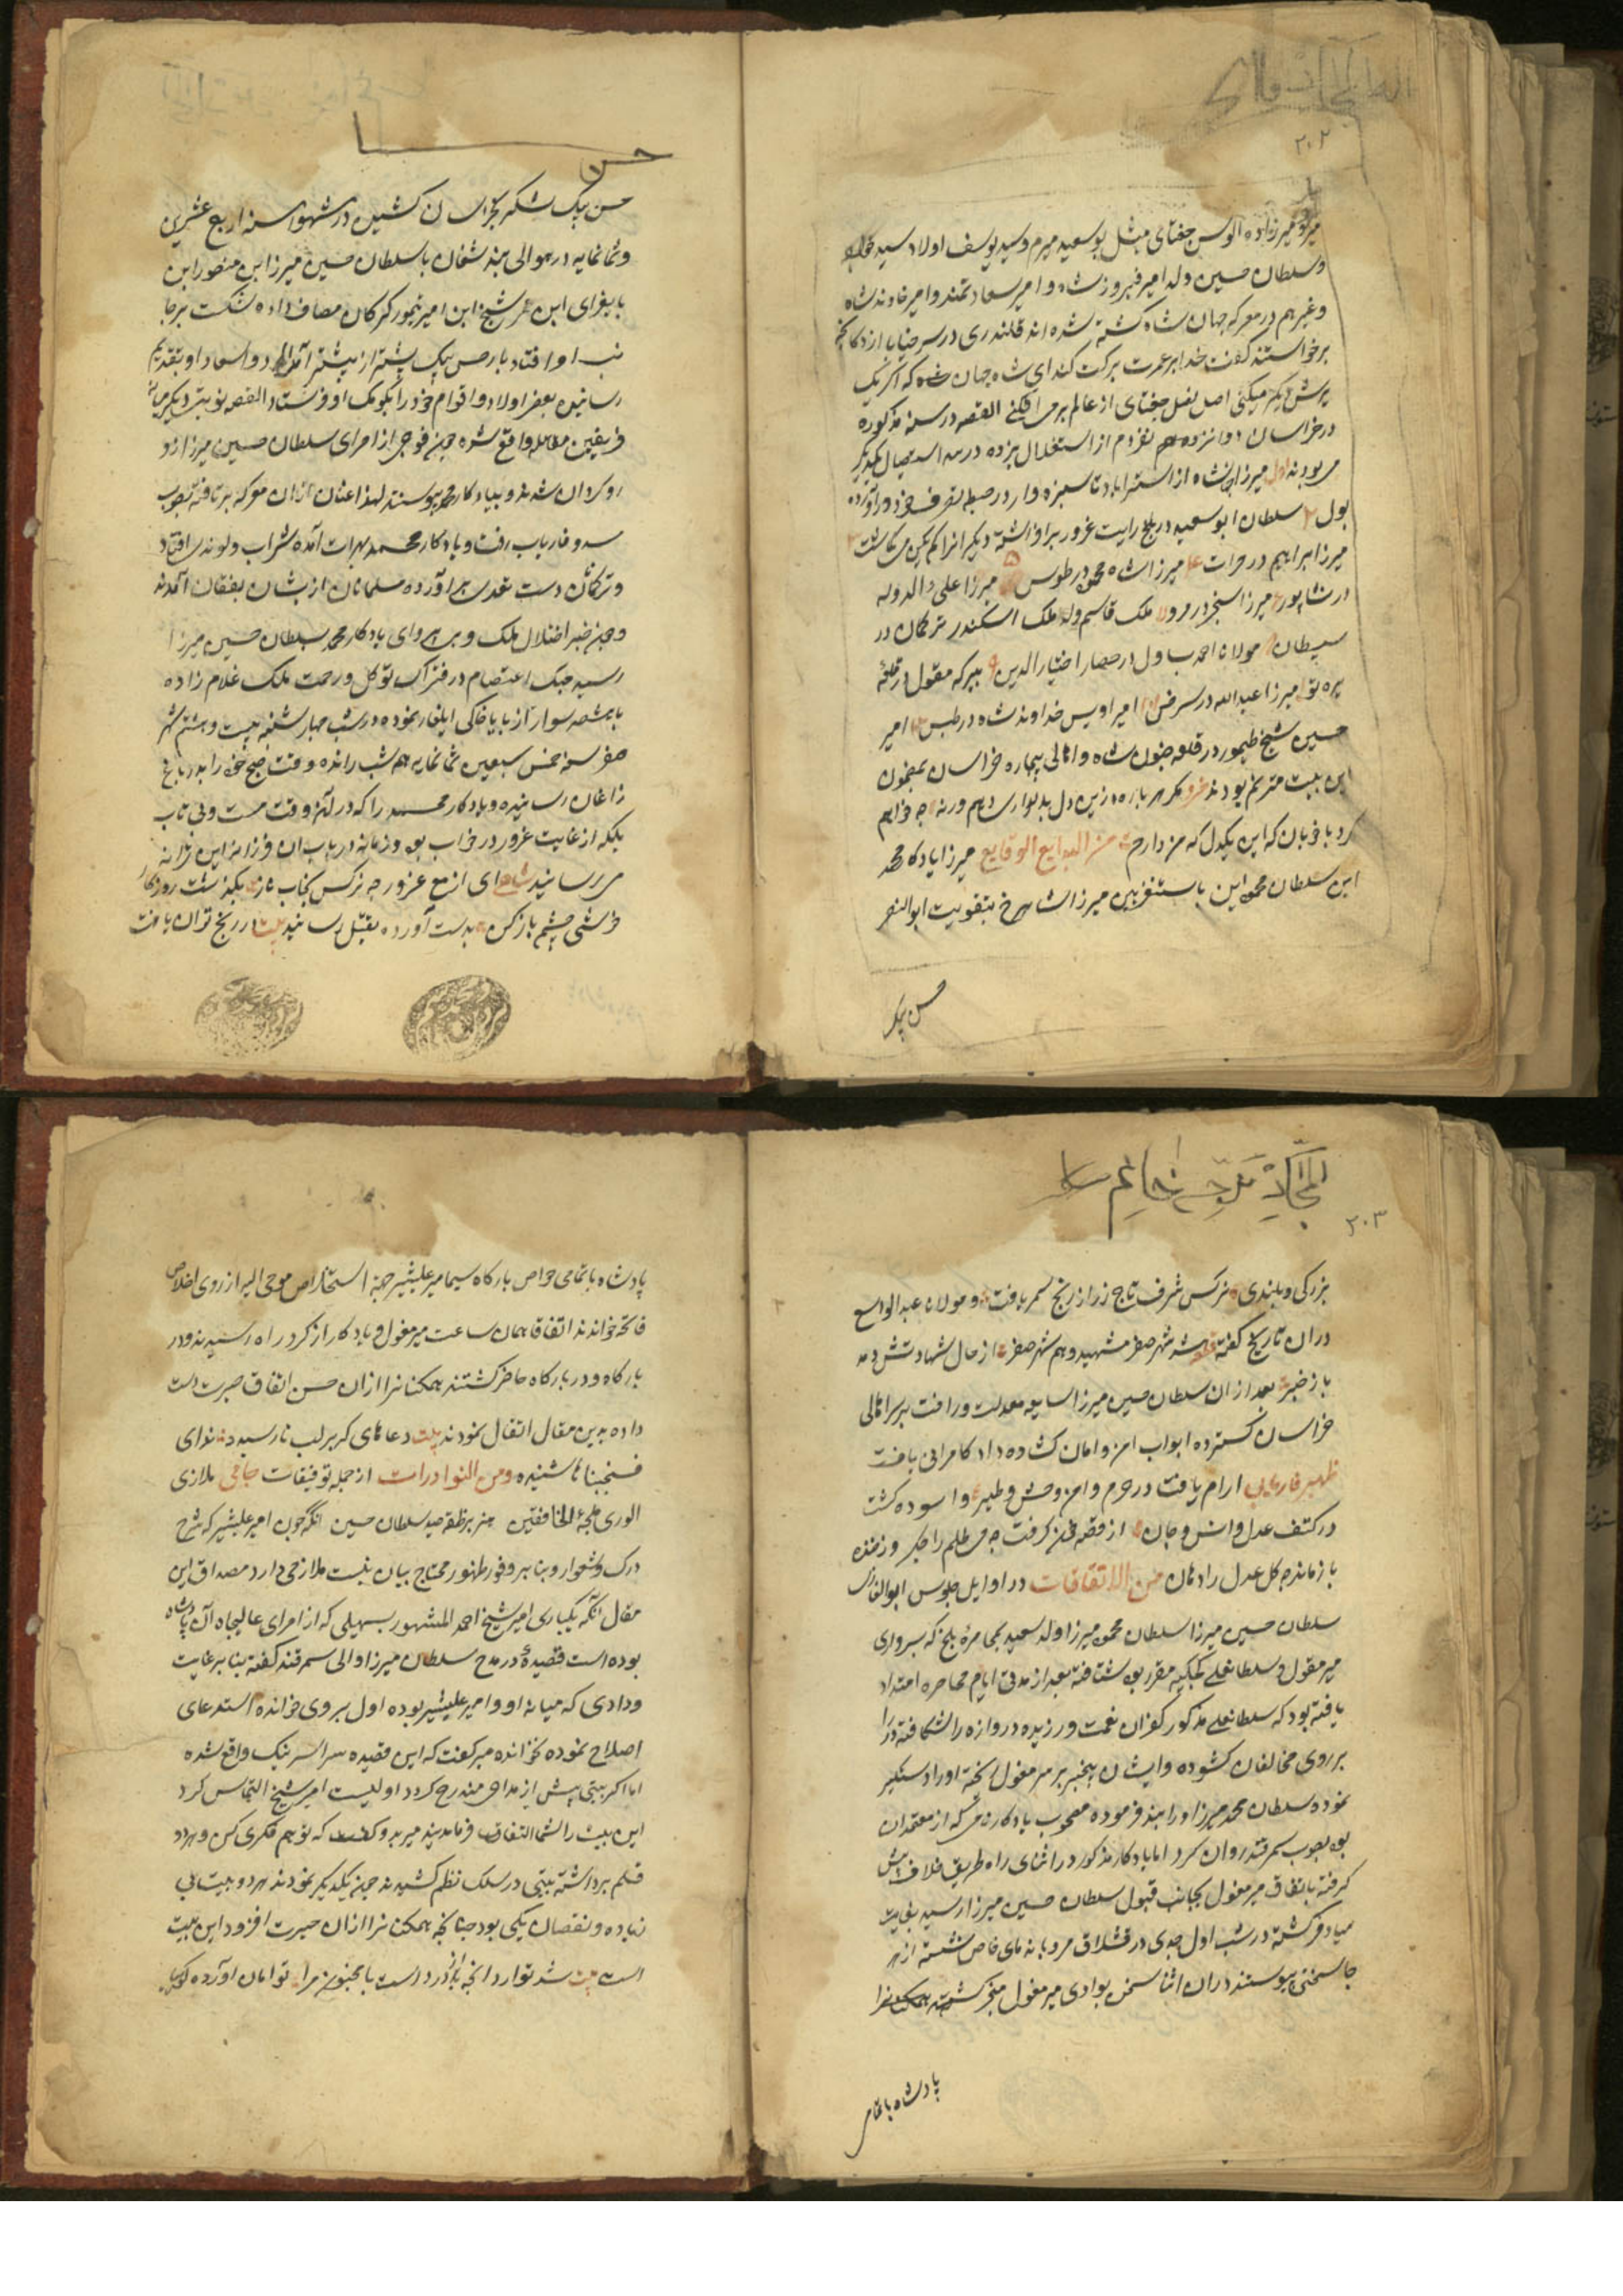 ۲۰۲
میرزاده الوس جغتای مثل بوسعید میرم و سید یوسف اولاد سید
و سلطان حسین ولد امیر فیروز شاه و امیر سعادتمند و امیر خاوند شاه
و غیرهم در معرکه جهان شاه کشته شده اند قلندری در سر خیابان از دکانچه
برخواستند گفت خدا بر عمرت برکت کند ای شاه جهان که اگر یک
پرش دیگر میکنی اصل نسل جغتای از عالم بر می افکنی القصه در سنه مذکوره
در خراسان دوانزده نفر دم از استقلال میزده در صدد استیصال یکدیگر
می بودند اول میرزا جهانشاه از استراباد تا سبزه وار در ضبط تصرف خود در آورده
بود ۲ سلطان ابو سعید در بلخ رایت غرور بر افراشته دیگر انرا کم یکن می انگاشت ۳
میرزا ابراهیم در هرات ۴ میرزا شاه محمود در طوس ۵ میرزا علاء الدوله
در نشاپور ۶ میرزا سنجر در مرو ۷ ملک قاسم ولد ملک اسکندر ترکمان در
سیستان ۸ مولانا احمد یساول در حصار اختیار الدین ۹ میرکه مقول در قلعه
سره تو میرزا عبد الله در سرخس امیر اویس خداوند شاه در طبس امیر
حسین شیخ طیمور در قلعه خبوشان و اهالی بیچاره خراسان بمضمون
این بیت مترنم بودند
کرد با خوبان که این یکدل که من دارم من البدایع الوقایع میرزا یادگار محمد
ابن سلطان محمد ابن باسنقر بن میرزا شاهرخ بتقویت ابو النصر
حسن بیک
حسن
حسن بیک لشکر بخراسان کشیده در شهور سنه اربع عشرین
و ثمانمایه در حوالی چند شغان با سلطان حسین میرزا ابن منصور ابن
بایقرای ابن عمر شیخ ابن امیر تیمور گرکان مصاف داده شکست بر جا
نب او افتاد بار حسن بیک بیشتر از بیشتر امداد و اسعاد او بتقدیم
رسانیده بعض اولاد و اقوام خود را بکومک او فرستاد القصه نوبت دیگر میانه
فریقین مقابله واقع شده چون فوجی از امرای سلطان حسین میرزا ازو
روگردان شدند و بیادگار محمد پیوستند لهذا عنان ازان معرکه بر تافته بصوب
و فاریاب رفت و یادگار محمد بهرات آمده بشراب و لوندی افتاد
و ترکمانان دست تعدی بر آورده مسلمانان از بشان بفغان آمدند
و چون خبر اختلال ملک و بی پروای یادگار محمد سلطان حسین میرزا
رسید چنگ اعتصام در فتراک توکل و رحمت ملک علام زاده
با سوار از بابا خاکی ایلغار نموده در شب چهار شنبه بیست و هشتم شهر
صفر سنه خمس سبعین ثمانمایه هم شب رانده وقت صبح خود را بدر باغ
زاغان رسانیده و یادگار محمد را که در آنوقت مست و بی تاب
بلکه از غایت غرور در خواب بود و زمانه در باب ان فرزانه این ترانه
می رسانید ای از می غرور چو نرگس بخواب ناز بگذشت روزگار
خوشی چشم باز کن بدست آورده بقتل رسانید بیت از رنج توان یافت
۲۰۳
بزرگی و بلندی نرگس شرف تاج زر از رنج سهر یافت و مولانا عبد الواسع
دران تاریخ گفته شه شهر صفر شهید و هم شهر صفر از حال شهادتش دهد
باز خبر بعد ازان سلطان حسین میرزا سایه معدلت و رافت بر سر اهالی
خراسان گسترده ابواب امن و امان گشاده داد کامرانی یافت
ظهیر فاریابی ارام یافت در حرم و امن وحش و طیر و اسوده گشت
در کنف عدل و انس و جان
باز ماند چو گل عدل را دهان من الاتفاقات در اوایل جلوس ابو الغازی
سلطان حسین میرزا سلطان محمود میرزا ولد سعید بمحاصره بلخ که بسرداری
میر مقول و سلطانعلی بکجکیه مقرر بود شتافته بعد از مدتی ایام محاصره امتداد
یافته بود که سلطانعلی مذکور کفران نعمت ورزیده دروازه را شکافته در را
بر روی مخالفان کشوده و ایشان بیخبر بر سر میر مغول ریخته او را دستگیر
نمودند سلطان محمد میرزا او را بند فرموده مصحوب یادگار نامی که از معتمدان
بود بصوب سمرقند روان کرد اما یادگار مذکور در اثنای راه طریق خلاف پیش
گرفته باتفاق میر مغول بجانب قبول سلطان حسین میرزا رسید بغایت
میاد گشته در شب اول جدی در قشلاق مرو با ندمای خاص نشسته از هر
جا سخنی می پیوستند دران اثنا سخن بوادی میر مغول منجر گشته همکنانرا
پادشاه با تمام
پادشاه با تمامی خواص بارگاه سیما میر علیشیر جهة استخلاص مومی الیه از روی اخلاص
فاتحه خواندند اتفاقا همان ساعت میر مغول و یادگار از گرد راه رسیدند و در
بارگاه و در بارگاه حاضر گشتند همکنانرا ازان حسن اتفاق حیرت دست
داده بدین مقال اتقال نمودند بیت دعاهای گر بر لب نارسیده ندای
فستجبنا ها شنیده ومن النوادرات از جمله توفیقات جامی ملاذی
الوری ملجاء الخافقین هزبر ظفر صید سلطان حسین انکه چون امیر علیشیر که شرح
درک و شعور او بنابر وفور ظهور محتاج بیان نیست ملازمی دارد مصداق این
مقال انکه یکباری امیر شیخ احمد المشهور بسهیلی که از امرای عالیجاه آن پادشاه
بوده است قصیدهٔ در مدح سلطان میرزا والی سمرقند گفته بنابر غایت
ودادی که میانه او و امیر علیشیر بوده اول بر وی خوانده استدعای
اصلاح نموده بخوانده میر گفت که این قصیده سراسر نیک واقع شده
اما اگر بیتی پیش از مداحی مندرج گردد اولیست امیر شیخ التماس کرد
این بیت را شما التفات فرمایند میر بدو گفت که تو هم فکری کن و هر دو
قلم برداشته بیتی در سلک نظم کشیدند چون بیکدیگر نمودند هر دو بیت بی
زیاده و نقصان یکی بود چنانچه همکنانرا ازان حیرت افزود این بیت
است بیت